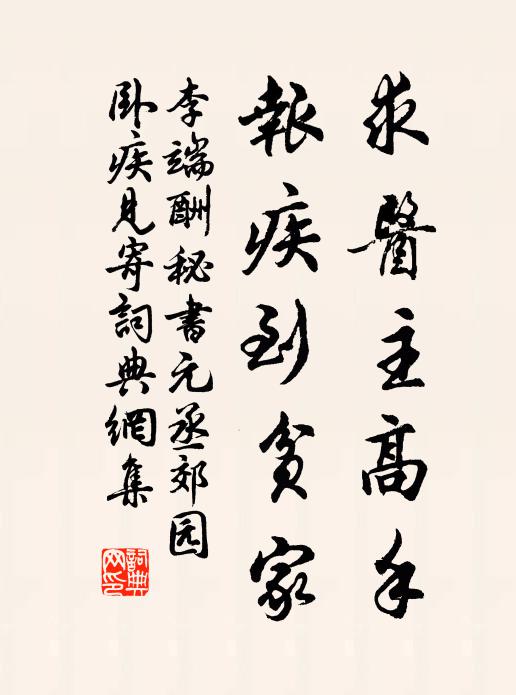 求醫主高手
報疾到貧家
李端酬秘書元丞郊园
卧疾見寄詞典網集
詞典网印